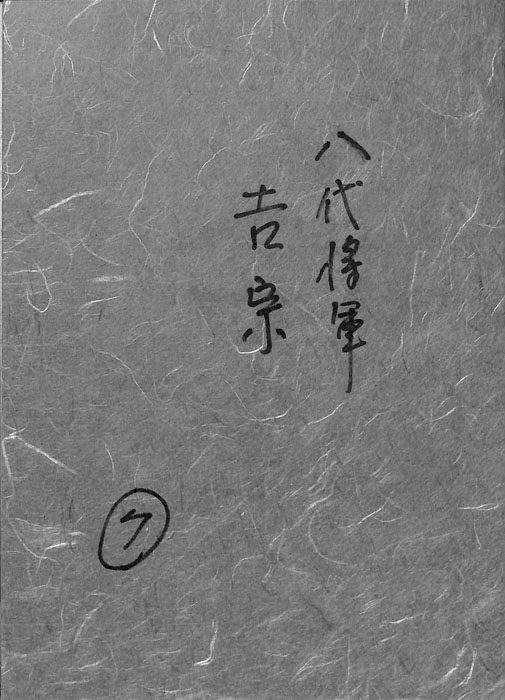 八代将軍
吉宗
ク